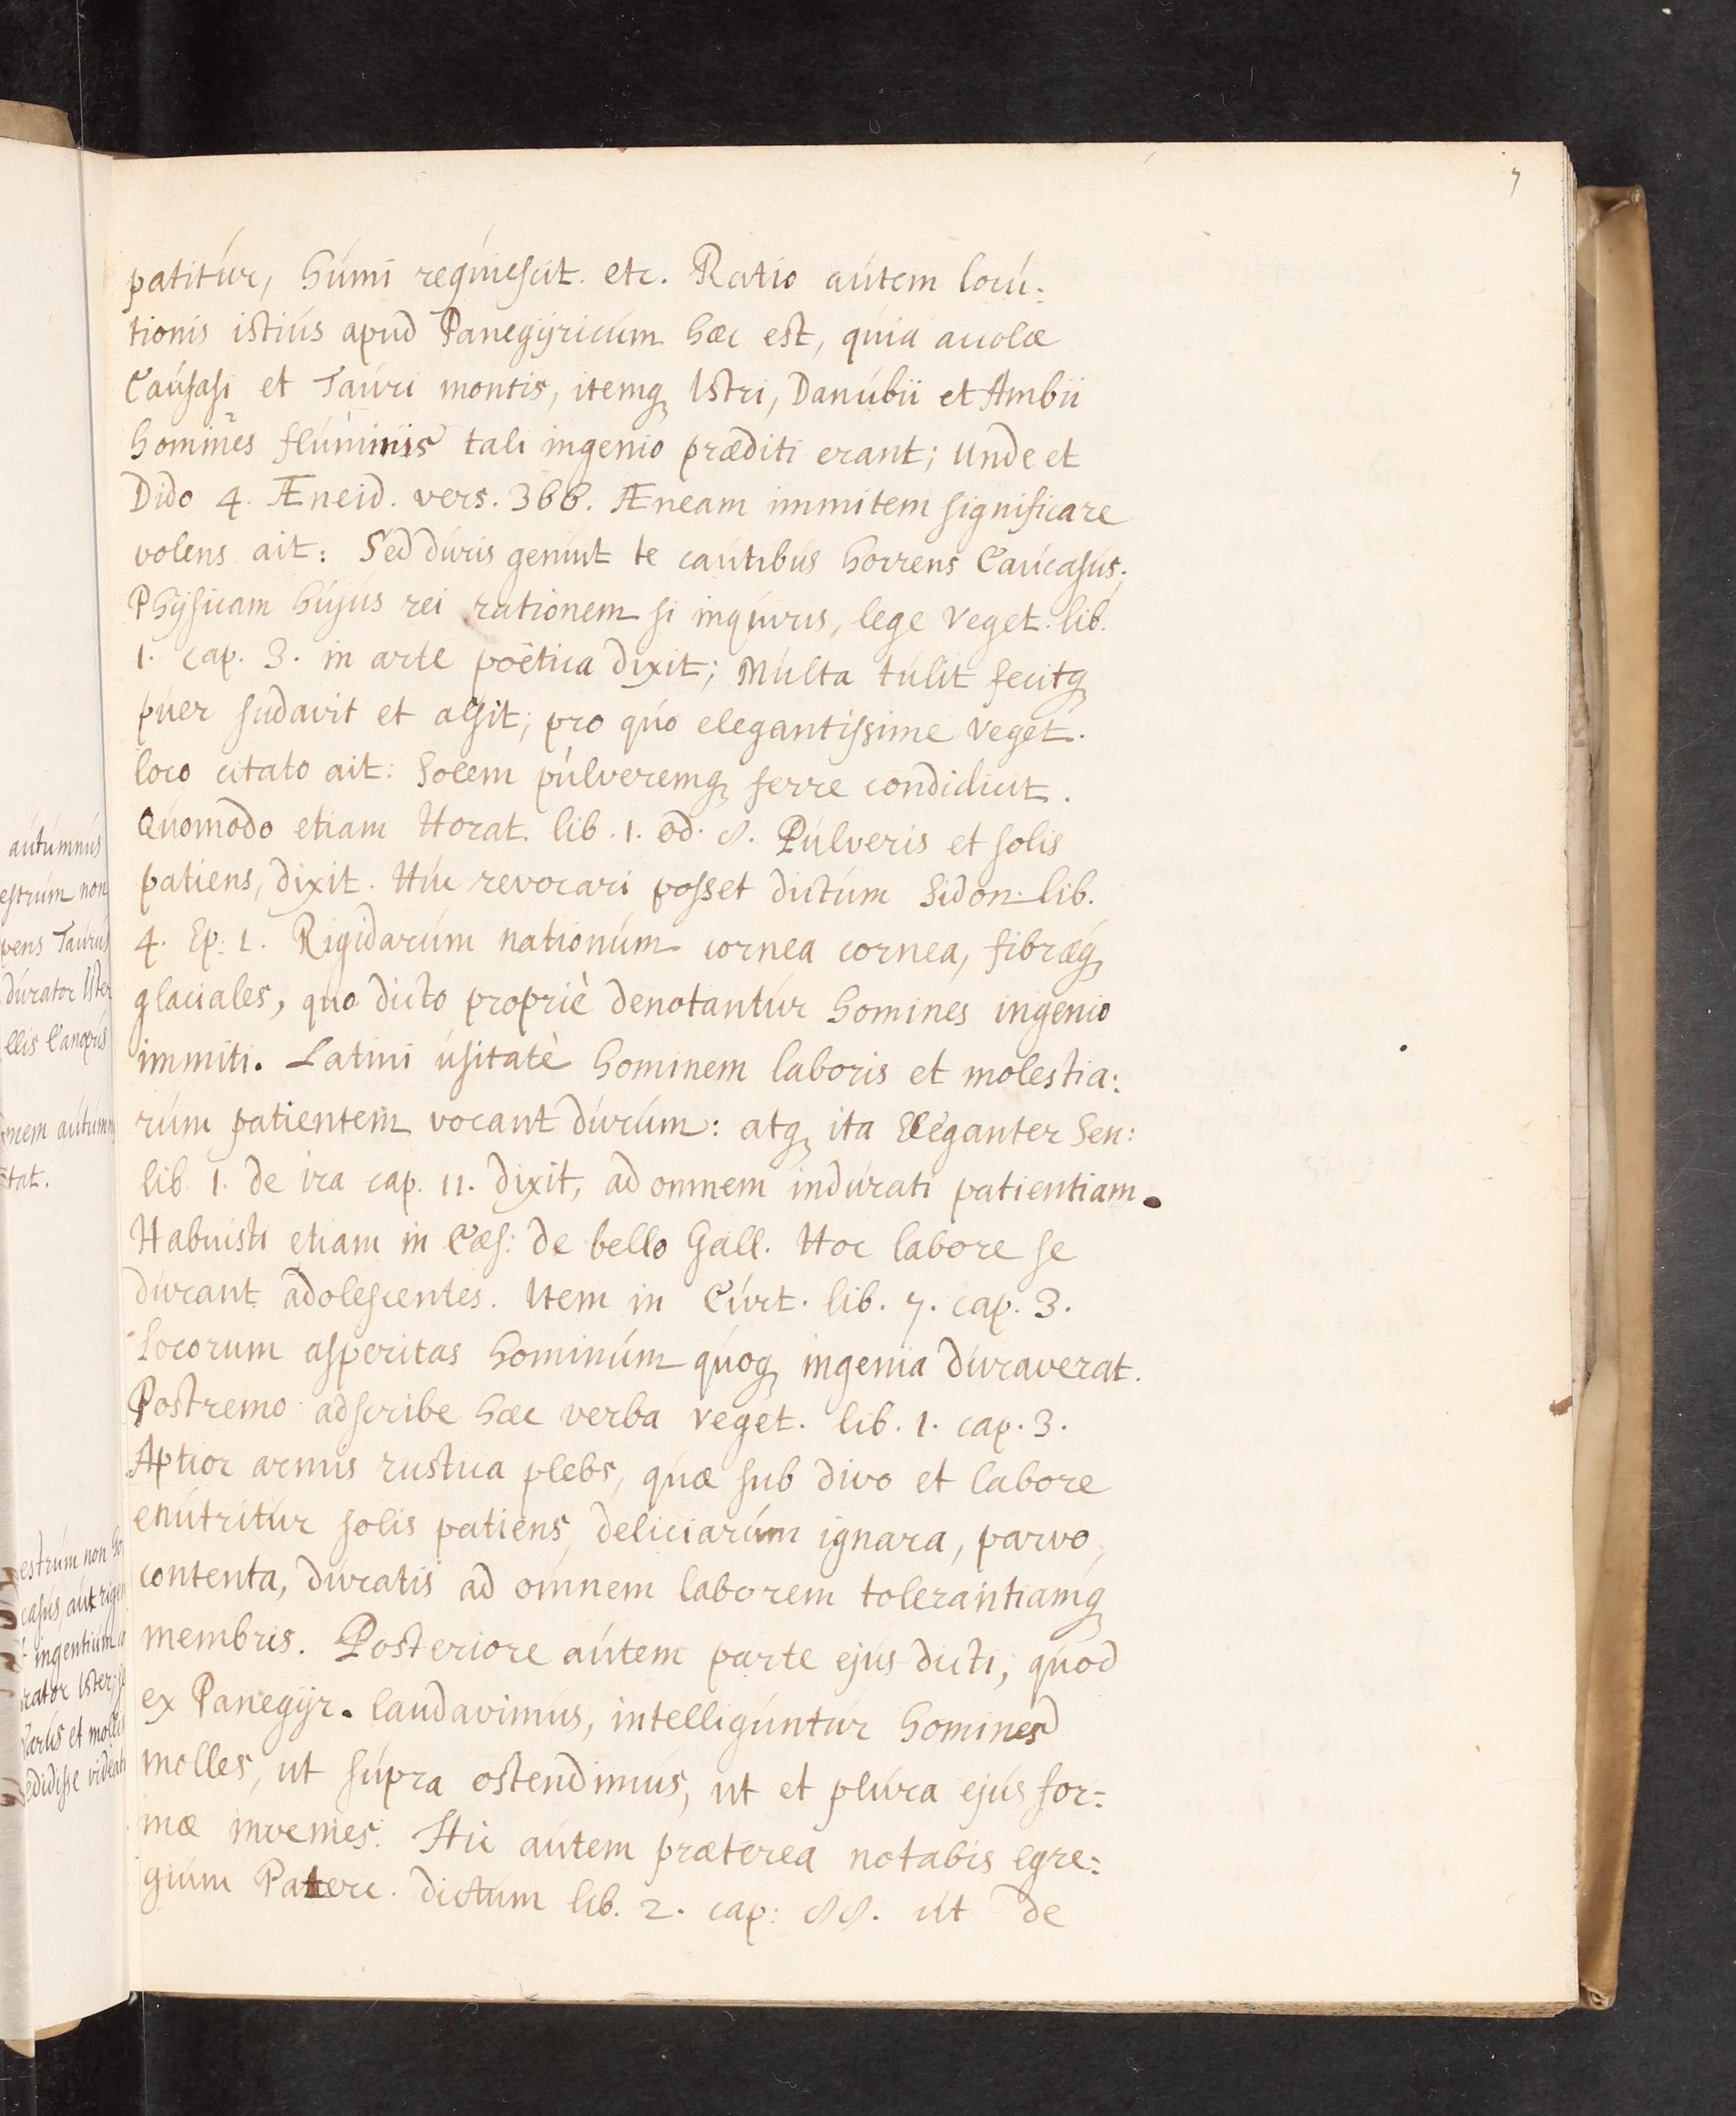 7
patitúr, húmi requiescit. etc. Ratio aútem locú:
tionis istiús apud Panegÿricúm hæc est, quia accolæ
Caúsasi et Taúri montis, itemq Istri, Danúbii et Ambii
homines flúminis tali ingenio præditi erant; Unde et
Dido 4. Æneid. vers. 366. Æneam immitem significare
volens ait: Sed dúris genúit te caútibús horrens Caúcasús;
Phÿsicam hújús rei rationem si inqúiris, lege Veget. lib.
1. cap. 3. in arte poëtica dixit; Múlta túlit fecitq
púer sudavit et alsit; pro qúo elegantissime Veget.
loco citato ait: Solem púlveremq ferre condidicit.
Qúomodo etiam Horat. lib. 1. od. 8. Púlveris et solis
patiens, dixit. Húc revocari posset dictúm Sidon. lib.
4. Ep. 1. Rigidarúm nationúm cornea cornea, fibræq
glaciales, quo dicto propriè denotantúr homines ingenio
immiti. Latini úsitatè hominem laboris et molestia:
rúm patientem vocant dúrúm: atq ita eleganter Sen:
lib. 1. de ira cap. 11. dixit, ad omnem indúrati patientiam.
Habuisti etiam in Cæs: de bello Gall. Hoc labore se
dúrant adolescentes. Item in Cúrt. lib. 7. cap. 3.
Locorum asperitas hominúm qúoq ingenia dúraverat.
Postremo adscribe hæc verba Veget. lib. 1. cap. 3.
Aptior armis rustica plebs, qúæ sub divo et labore
enútritúr solis patiens, deliciarúm ignara, parvo,
contenta, dúratis ad omnem laborem tolerantiamq
membris. Posteriore aútem parte ejús dicti, qúod
ex Panegÿr. laudavimús, intelligúntúr homines
molles, ut súpra ostendimús, ut et plúra ejús for:
mæ invenies. Hic aútem præterea notabis egre:
gium Paterc. dictum lib. 2. cap: 88. út de
aútúmnús
estrúm non
vens Taúrús
dúrator Ister
llis Canopús
mem aútúmn
tat.
estrúm non ho
casús, aút rigen
ingentiúm
rator Ister;
arús et molli
edidisse videat